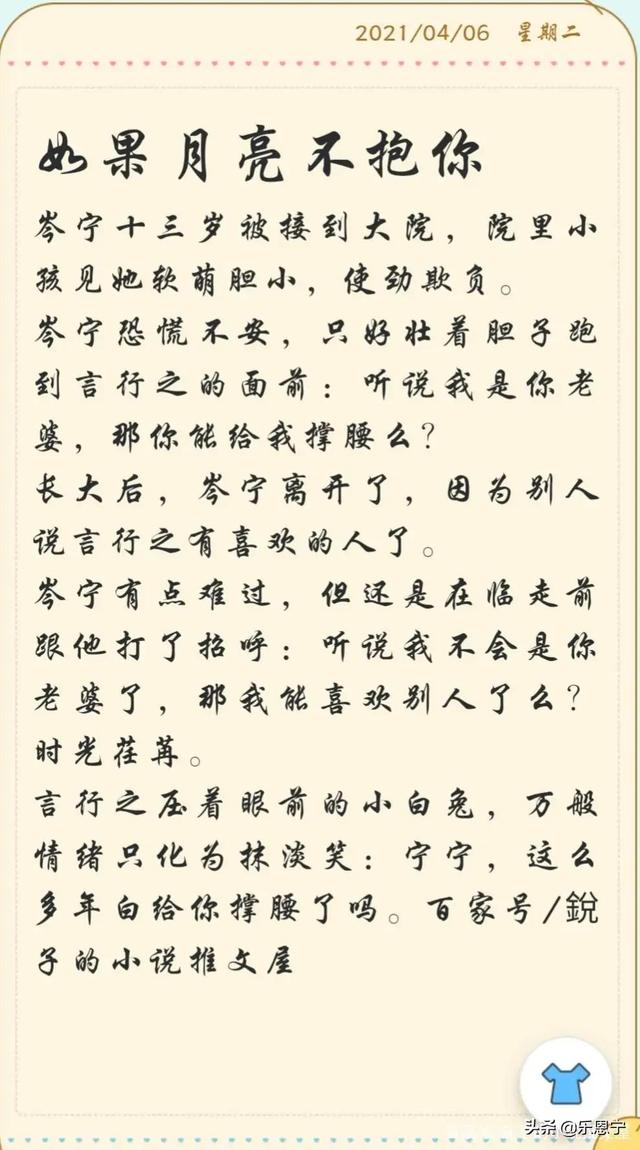 2021/04/06 星期二
如果月亮不抱你
岑宁十三岁被接到大院，院里小
孩见她软萌胆小，使劲欺负。
岑宁恐慌不安，只好壮着胆子跑
到言行之的面前：听说我是你老
婆，那你能给我撑腰么？
长大后，岑宁离开了，因为别人
说言行之有喜欢的人了。
岑宁有点难过，但还是在临走前
跟他打了招呼：听说我不会是你
老婆了，那我能喜欢别人了么？
时光荏苒。
言行之压着眼前的小白兔，万般
情绪只化为抹淡笑：宁宁，这么
多年白给你撑腰了吗。百家号/銳
子的小说推文屋
头条 @乐恩宁